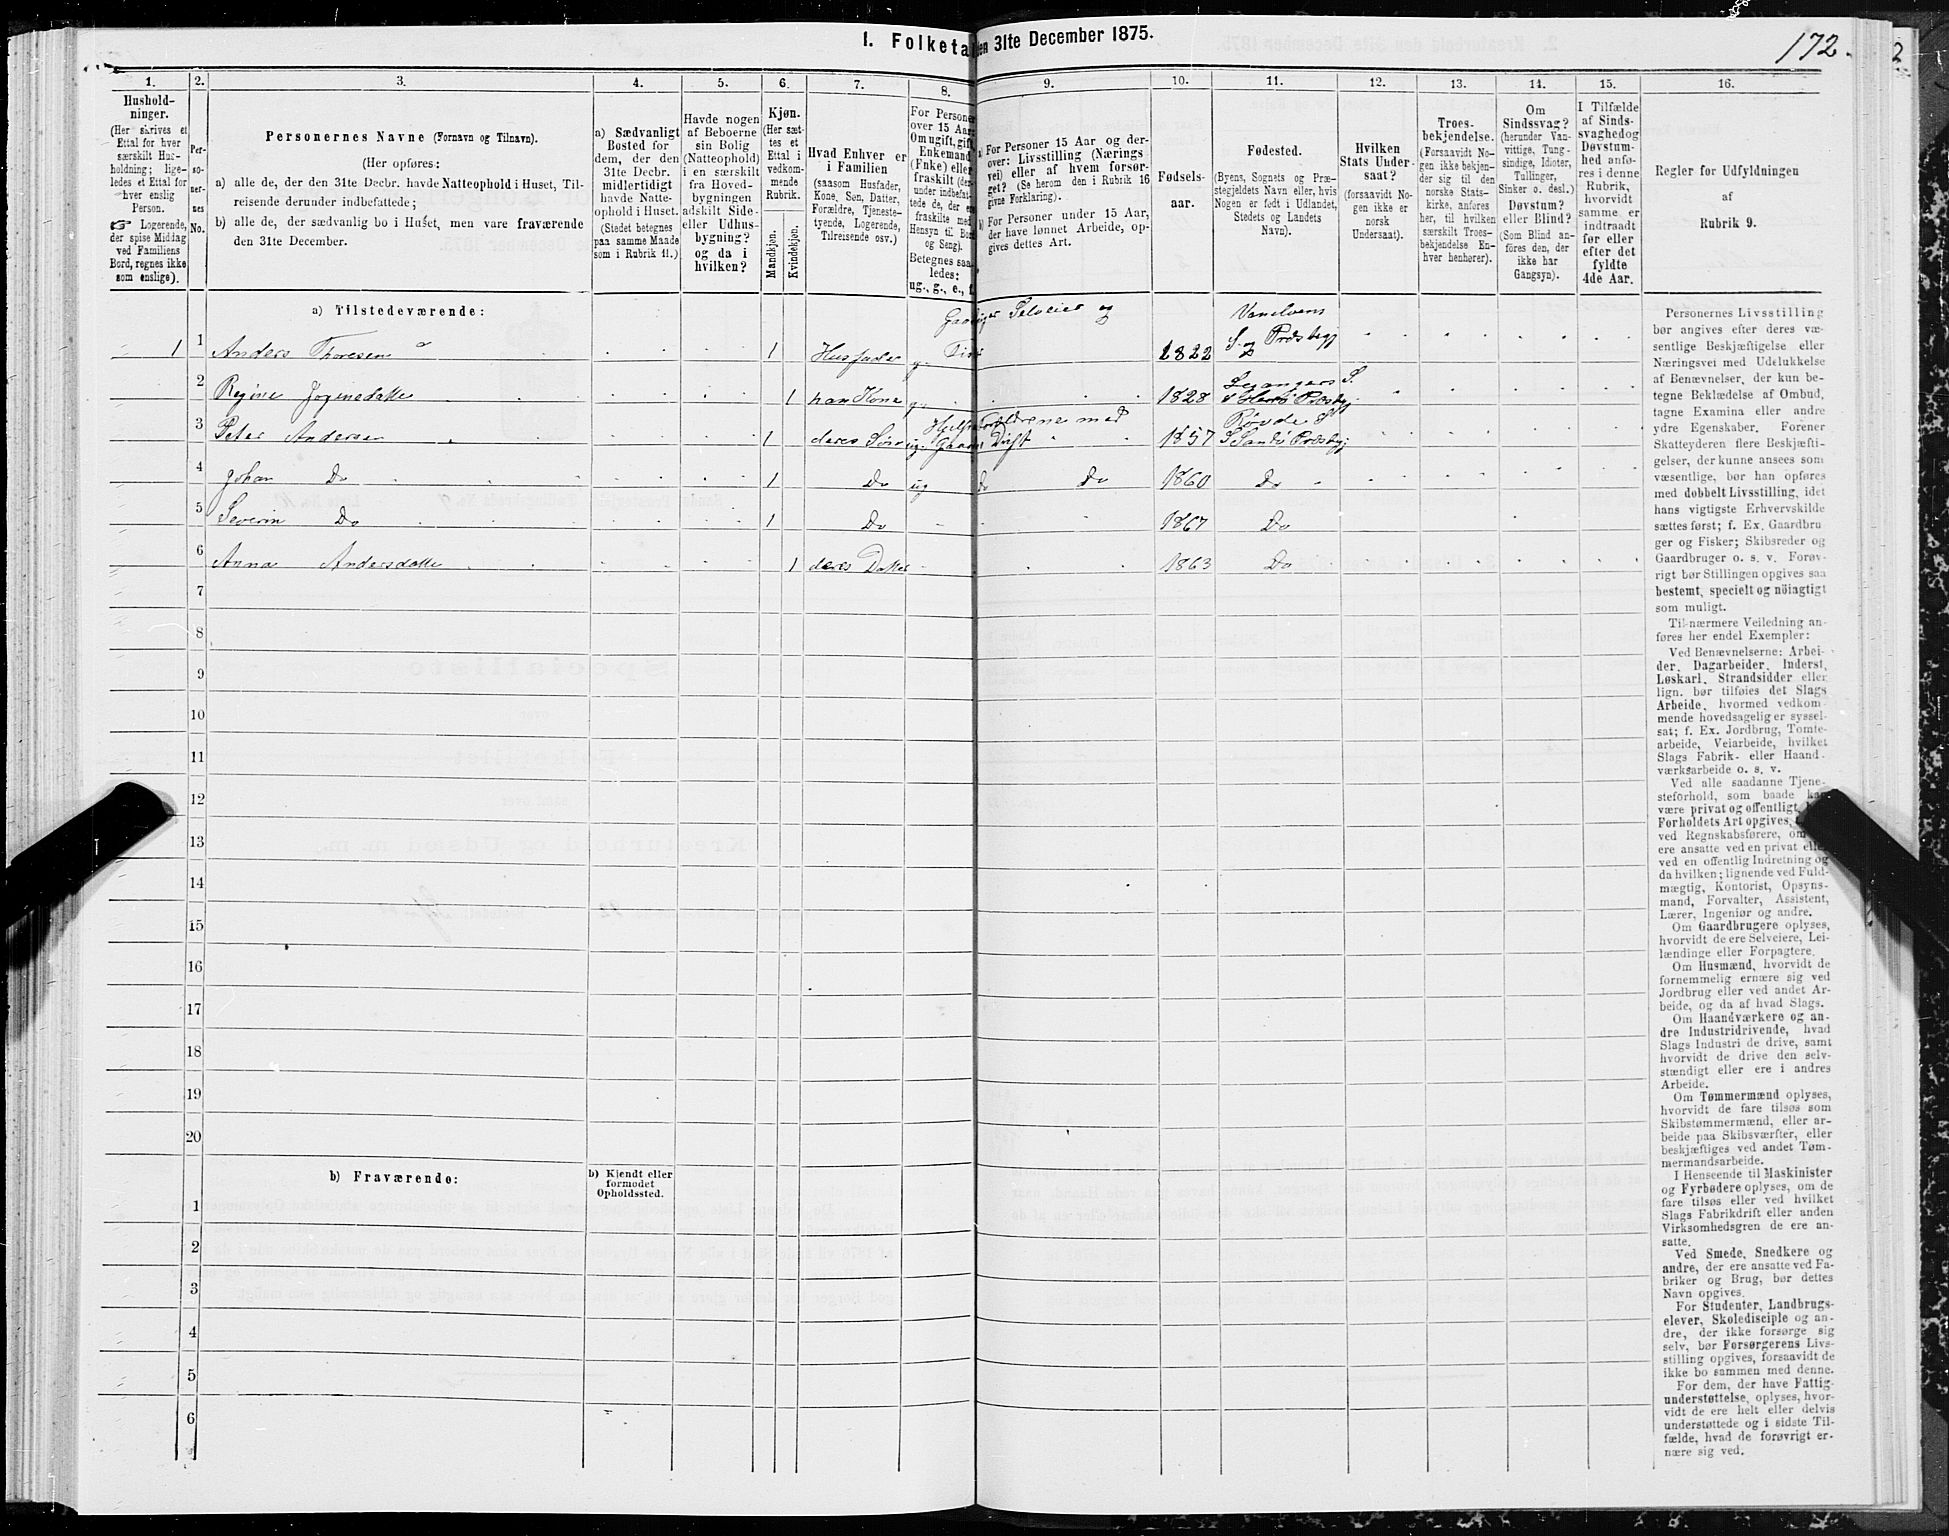 1. Folketa
en 31te December 1875.
172.
2
1.
2.
3.
4.
5.
6.
7.
8.
9.
10.
11.
12.
13.
14.
15.
16.
Hushold-
ninger.
(Her skrives et
Ettal for hver
særskilt Hus-
holdning; lige-
ledes et Ettal for
hver enslig
Person.
☞ Logerende,
der spise Middag
ved Familiens
Bord, regnes ikke
som enslige).
Per-
so-
ner-
nes
No.
Personernes Navne (Fornavn og Tilnavn).
(Her opføres:
a) alle de, der den 31te Decbr. havde Natteophold i Huset, Til-
reisende derunder indbefattede;
b) alle de, der sædvanlig bo i Huset, men vare fraværende
den 31te December.
a) Sædvanligt
Bosted for
dem, der den
31te Decbr.
midlertidigt
havde Natte-
ophold i Huset.
(Stedet betegnes
paa samme Maade
som i Rubrik 11.)
Havde nogen
af Beboerne
sin Bolig
(Natteophold)
i en særskilt
fra Hoved-
bygningen
adskilt Side-
eller Udhus-
bygning?
og da i
hvilken?
Kjøn.
(Her sæt-
tes et
Ettal i
vedkom-
mende
Rubrik.
Mandkjøn.
Kvindekjøn.
Hvad Enhver er
i Familien
(saasom Husfader,
Kone, Søn, Datter,
Forældre, Tjeneste-
tyende, Logerende,
Tilreisende osv.)
For Persone
over 15 Aar
Om ugift, gift,
Enkemand
(Enke) eller
fraskilt (der-
under indbefat-
tede de, der ere
fraskilte med
Hensyn til Bord
og Seng).
Betegnes saa-
ledes:
ug., g., e., f.
a) For Personer 15 Aar og der-
over: Livsstilling (Nærings
vei) eller af hvem forsør-
get? (Se herom den i Rubrik 16
givne Forklaring).
b) For Personer under 15 Aar,
der have lønnet Arbeide, op-
gives dettes Art.
Fødsels-
aar.
Fødested.
(Byens, Sognets og Præ-
stegjeldets Navn eller, hvis
Nogen er født i Udlandet,
Stedets og Landets
Navn).
Hvilken
Stats Under-
saat?
(forsaavidt No-
gen ikke er
norsk
Undersaat).
Troes-
bekjendelse.
(Forsaavidt No-
gen ikke bekjen-
der sig til den
norske Stats-
kirke, anføres
her, til hvilken
særskilt Troes-
bekjendelse En-
hver henhører).
Om
Sindssvag?
(herunder Van-
vittige, Tung-
sindige, Idioter,
Tullinger,
Sinker o. desl.)
Døvstum?
eller Blind?
(Som Blind an-
føres den, der
ikke har
Gangsyn).
I Tilfælde
af Sinds-
svaghed og
Døvstum-
hed anfø-
res i denne
Rubrik,
hvorvidt
samme er
indtraadt
før eller
efter det
fyldte
4de Aar.
Regler før Udfyldningen
af
Rubrik 9.
a) Tilstedeværende:
1 1 Anders Thoresen 1 Husfader g. Gaardbruger Selveier og Fisk 1822 Vanelvens S. og Præstegj
2 Regine Jogensdatter 1 hans Kone g. 1828 S.
3 Peter Andersen 1 deres Søn ug. Hj Forældrene med Gaards Drift 1857 Røvde S Sandø Præstegj
4 Johan Do 1 Do ug Do Do 1860 Do
5 Severin Do 1 Do 1867 Do
6 Anna Andersdatter 1 deres Datter 1863 Do
7
8
9
10
11
12
13
14
15
16
17
18
19
20
b) Fraværende:
b) Kjendt eller
formodet
Opholdssted.
1
2
3
4
5
6
Personernes Livsstilling
bør angives efter deres væ-
sentlige Beskjæftigelse eller
Næringsvei med Udelukkelse
af Benævnelser, der kun be-
tegne Beklædelse af Ombud,
tagne Examina eller andre
ydre Egenskaber. Forener
Skatteyderen flere Beskjæfti-
gelser, der kunne ansees som
væsentlige, bør han opføres
med dobbelt Livsstilling, idet
hans vigtigste Erhvervskilde
sættes først; f. Ex. Gaardbru
ger og Fisker; Skibsreder og
Gaardbruger o. s. v. Forøv-
rigt bør Stillingen opgives saa
bestemt, specielt og nöiagtigt
som muligt.
Til nærmere Veiledning an-
føres her endel Exempler:
Ved Benævnelserne: Arbei-
der, Dagarbeider, Inderst,
Løskarl, Strandsidder eller
lign. bør tilføies det Slags
Arbeide, hvormed vedkom-
mende hovedsagelig er syssel-
sat; f. Ex. Jordbrug, Tomte-
arbeide, Veiarbeide, hvilket
Slags Fabrik- eller Haand-
værksarbeide o. s. v.
Ved alle saadanne Tjene-
steforhold, som baade kan
være privat og offentligt,
Forholdets Art opgives,
ved Regnskabsførere, om
ere ansatte ved en privat eller
ved en offentlig Indretning og
da hvilken; lignende ved Fuld-
mægtig, Kontorist, Opsyns-
mand, Forvalter, Assistent,
Lærer, Ingeniør og andre.
Om Gaardbrugere oplyses,
hvorvidt de ere Selveiere, Lei-
lændinge eller Forpagtere.
Om Husmænd, hvorvidt de
fornemmelig ernære sig ved
Jordbrug eller ved andet Ar-
beide, og da af hvad Slags.
Om Haandværkere og an-
dre Industridrivende, hvad
Slags Industri de drive, samt
hvorvidt de drive den selv-
stændigt eller ere i andres
Arbeide.
Om Tømmermænd oplyses,
hvorvidt de fare tilsøs som
Skibstømmermænd, eller ar-
beide paa Skibsværfter, eller
beskjæftiges ved andet Tøm-
mermandsarbeide.
I Henseende til Maskinister
og Fyrbødere oplyses, om de
fare tilsøs eller ved hvilket
Slags Fabrikdrift eller anden
Virksomhedsgren de ere an-
satte.
Ved Smede, Snedkere og
andre, der ere ansatte ved Fa-
briker og Brug, bør dettes
Navn opgives.
For Studenter, Landbrugs-
elever, Skoledisciple og an-
dre, der ikke forsørge sig
selv, bør Forsørgerens Livs-
stilling opgives, forsaavidt de
ikke bo sammen med denne.
For dem, der have Fattig-
understøttelse, oplyses, hvor-
vidt de ere helt eller delvis
understøttede og i sidste Til-
fælde, hvad de forøvrigt er-
nære sig ved.